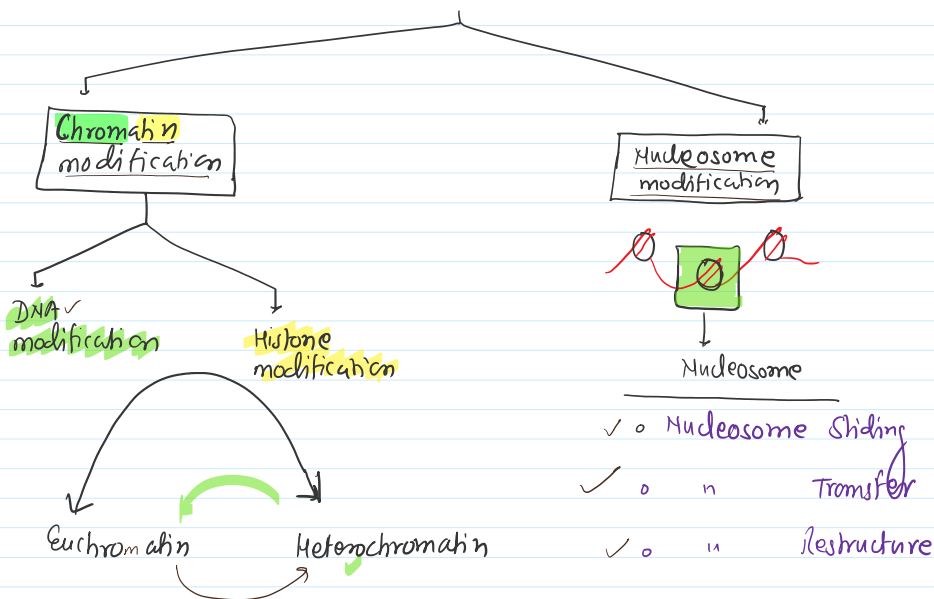 Chromatin
modification
Nucleosome
modification
DNA ✓
modification
Histone
modification
Nucleosome
✓ o Nucleosome Sliding
✓ o " Transfer
✓ o " Restructure
Euchromatin
Heterochromatin